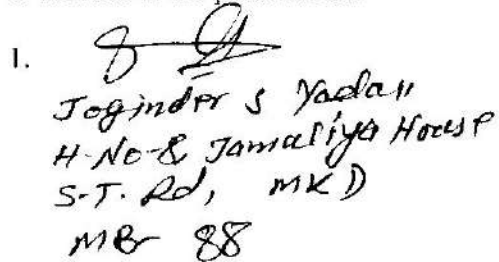 1.
Joginder S Yadav
H-No-8, Jamaliya House
S.T. Rd, MKD
MB 88